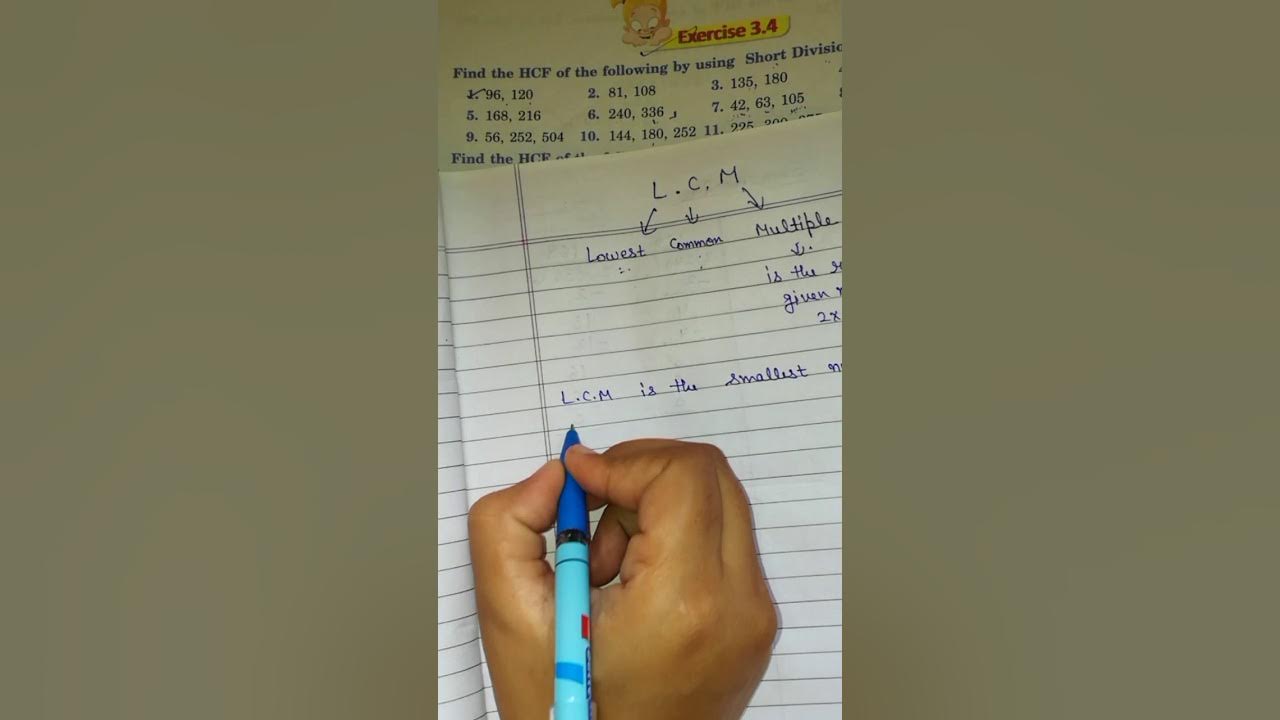 Exercise 3.4
Find the HCF of the following by using Short Divisio
1. 96, 120 2. 81, 108 3. 135, 180
5. 168, 216 6. 240, 336 7. 42, 63, 105
9. 56, 252, 504 10. 144, 180, 252 11. 225,
Find the HCF of
L. C. M
Lowest Common Multiple
is the
given
2x
L.C.M is the smallest